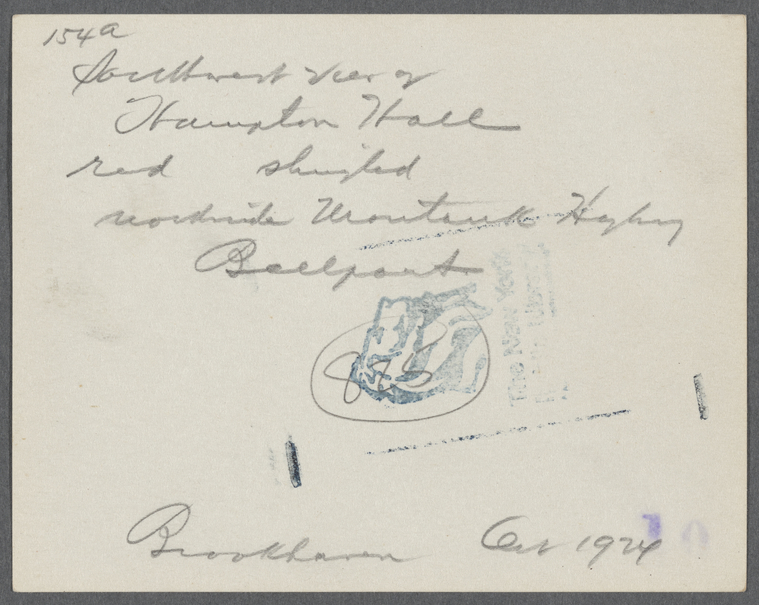 154a
Southwest View of
Hampton Hall
red shingled
northside Montauk Hghwy
Bellport
The New York
885
Brookhaven Oct 1924
10